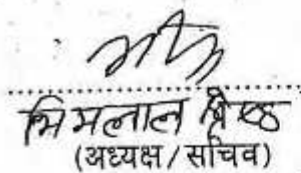 भिमलाल श्रेष्ठ
(अध्यक्ष/सचिव)